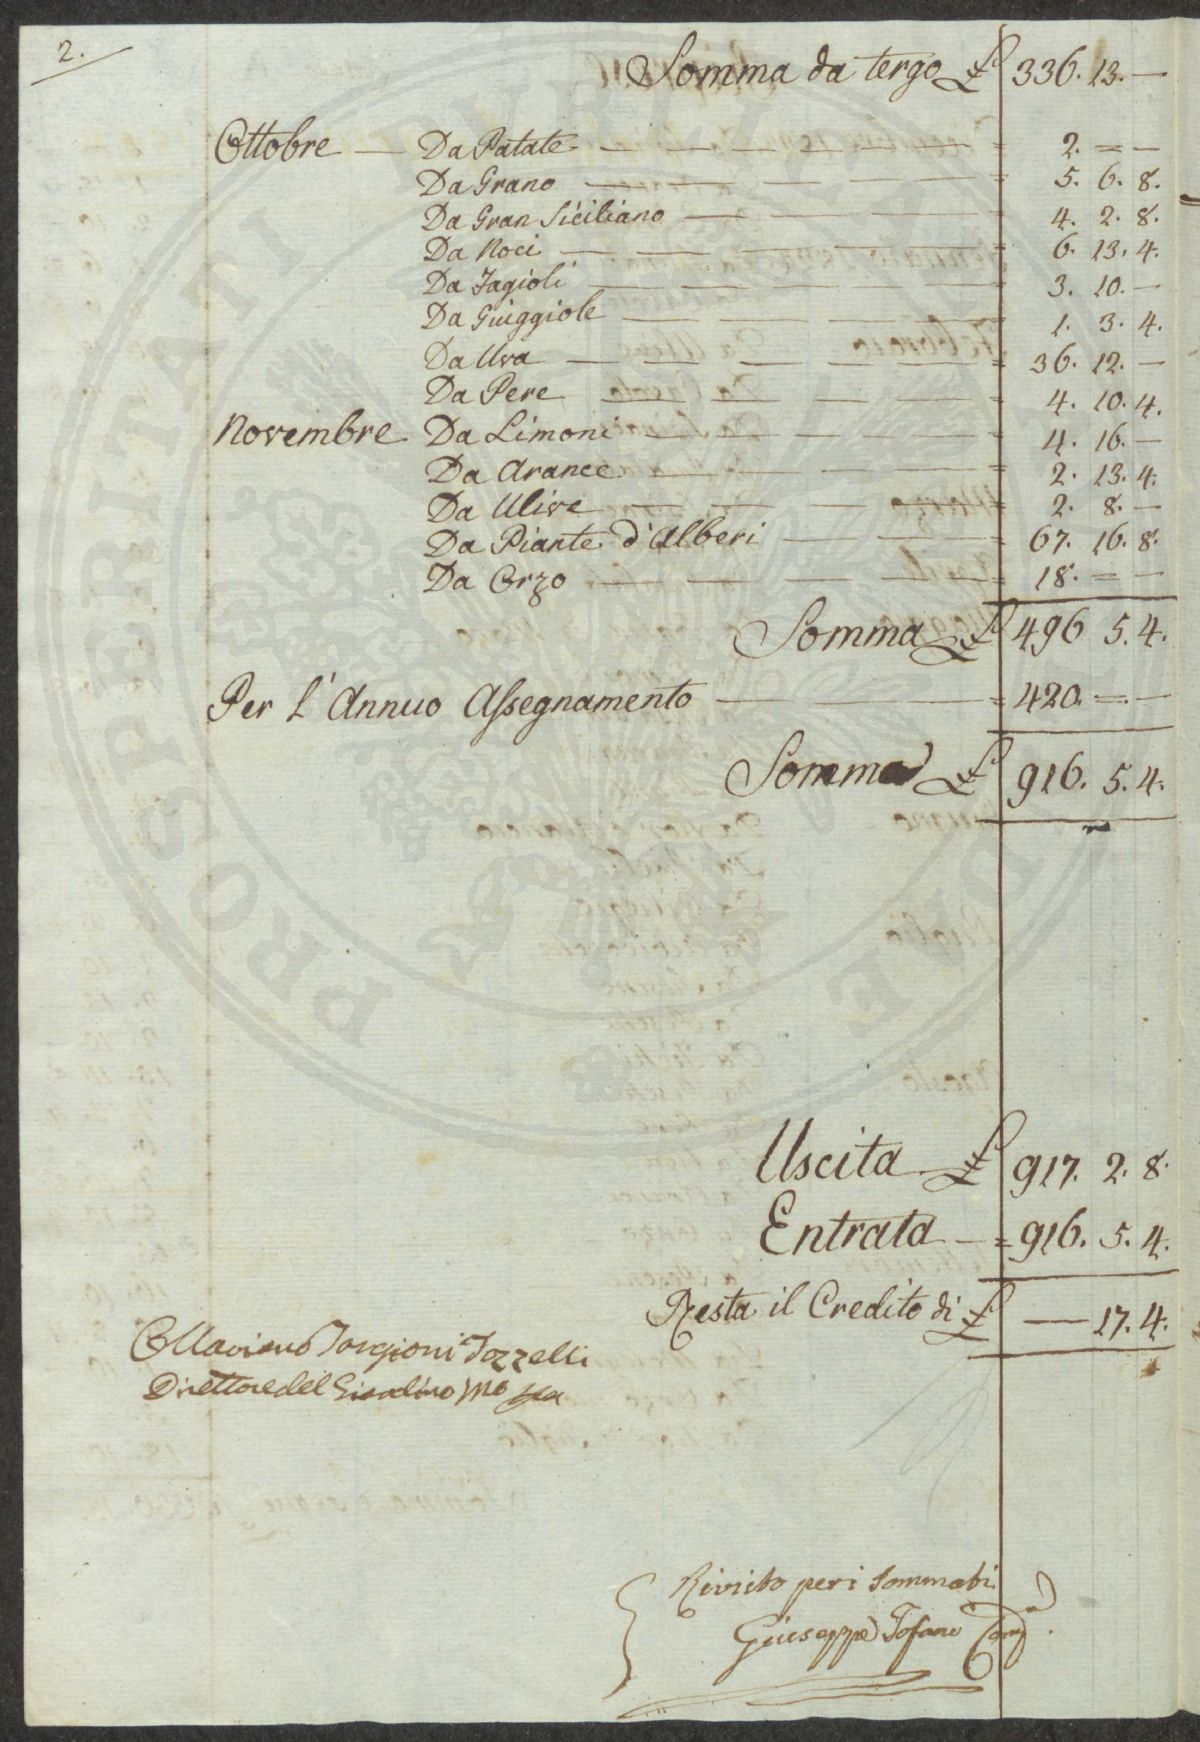 2.
Somma da tergo £ 336. 13. —
Ottobre — Da Patate — 2. = —
Da Grano — 5. 6. 8.
Da Gran Siciliano — 4. 2. 8.
Da Noci — 6. 13. 4.
Da Fagioli — 3. 10. —
Da Giuggiole — 1. 3. 4.
Da Uva — 36. 12. —
Da Pere — 4. 10. 4.
Novembre Da Limoni — 4. 16. —
Da Arance — 2. 13. 4.
Da Ulive — 2. 8. —
Da Piante d'Alberi — 67. 16. 8.
Da Orzo — 18. = —
Somma £ 496 5. 4.
Per l'Annuo Assegnamento — 420. = —
Somma £ 916. 5. 4.
Uscita £ 917. 2. 8.
Entrata — = 916. 5. 4.
Resta il Credito di £ — 17. 4.
Ottaviano Targioni Tozzelli
Direttore del Giardino
Rivisto per i Sommati
Giuseppe Tofani
PROSPERITATI PUBLICAE